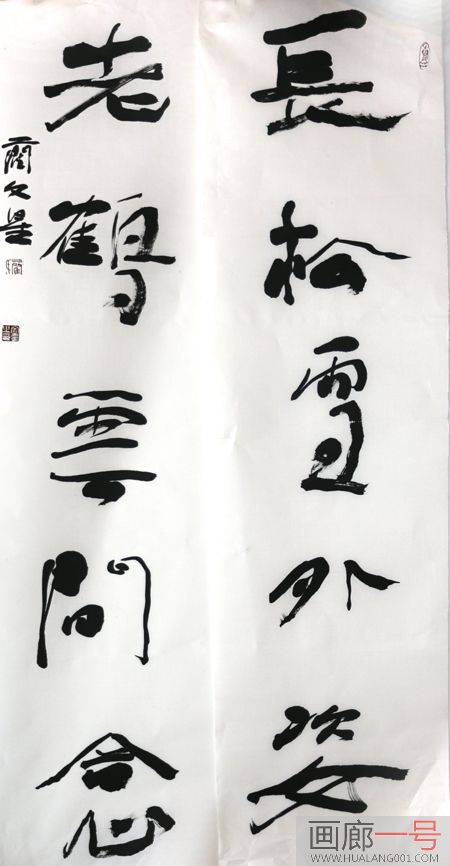 長松雪外姿
老鶴雲間念
文星
画廊一号
WWW.HUALANG001.COM